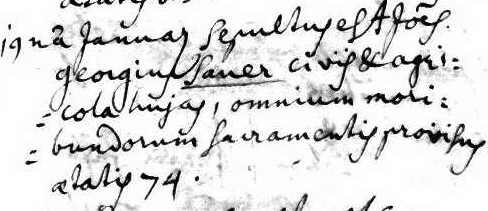 19na Januar sepultus est Joes
georgius Sauer civis & agri=
=cola hujas, omnium mori=
=bundorum sacramentis provisus
ætatis 74.